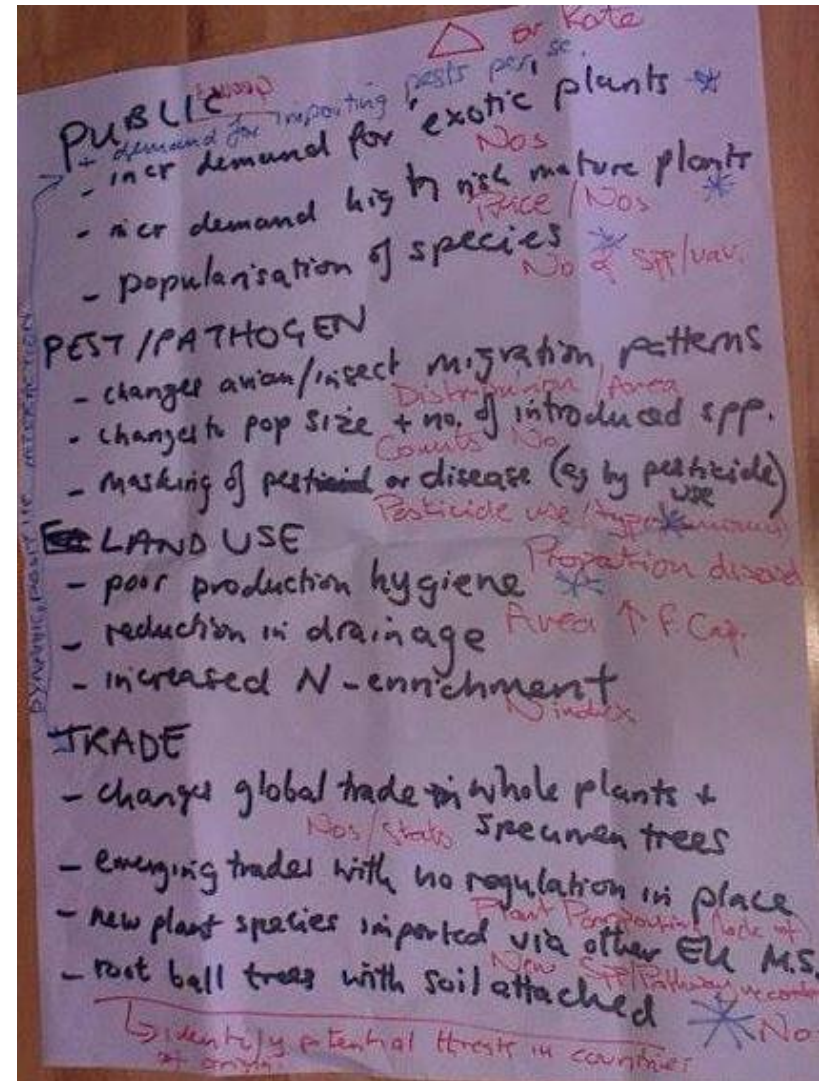 △ or Rate
PUBLIC
+ demand for importing pests per se.
- incr demand for exotic plants *
Nos
- incr demand high risk mature plants *
Price / Nos
- popularisation of species *
No of Spp/var.
PEST/PATHOGEN
- changes avian/insect migration patterns
Distribution / Area
- changes to pop size + no. of introduced spp.
Counts No
- masking of pest or disease (eg by pesticide)
use
Pesticide use (type
LAND USE
Proportion diseased
- poor production hygiene *
- reduction in drainage
Area ↑ f. Cap.
- increased N-enrichment
N index
TRADE
- changes global trade in whole plants +
specimen trees
Nos/stats
- emerging trades with no regulation in place
Plant (lack of)
- new plant species imported via other EU M.S.
New Spp/Pathway
- root ball trees with soil attached
* No
↳ identify potential threats in countries
of origin.
DYNAMIC, POSITIVE INTERACTION